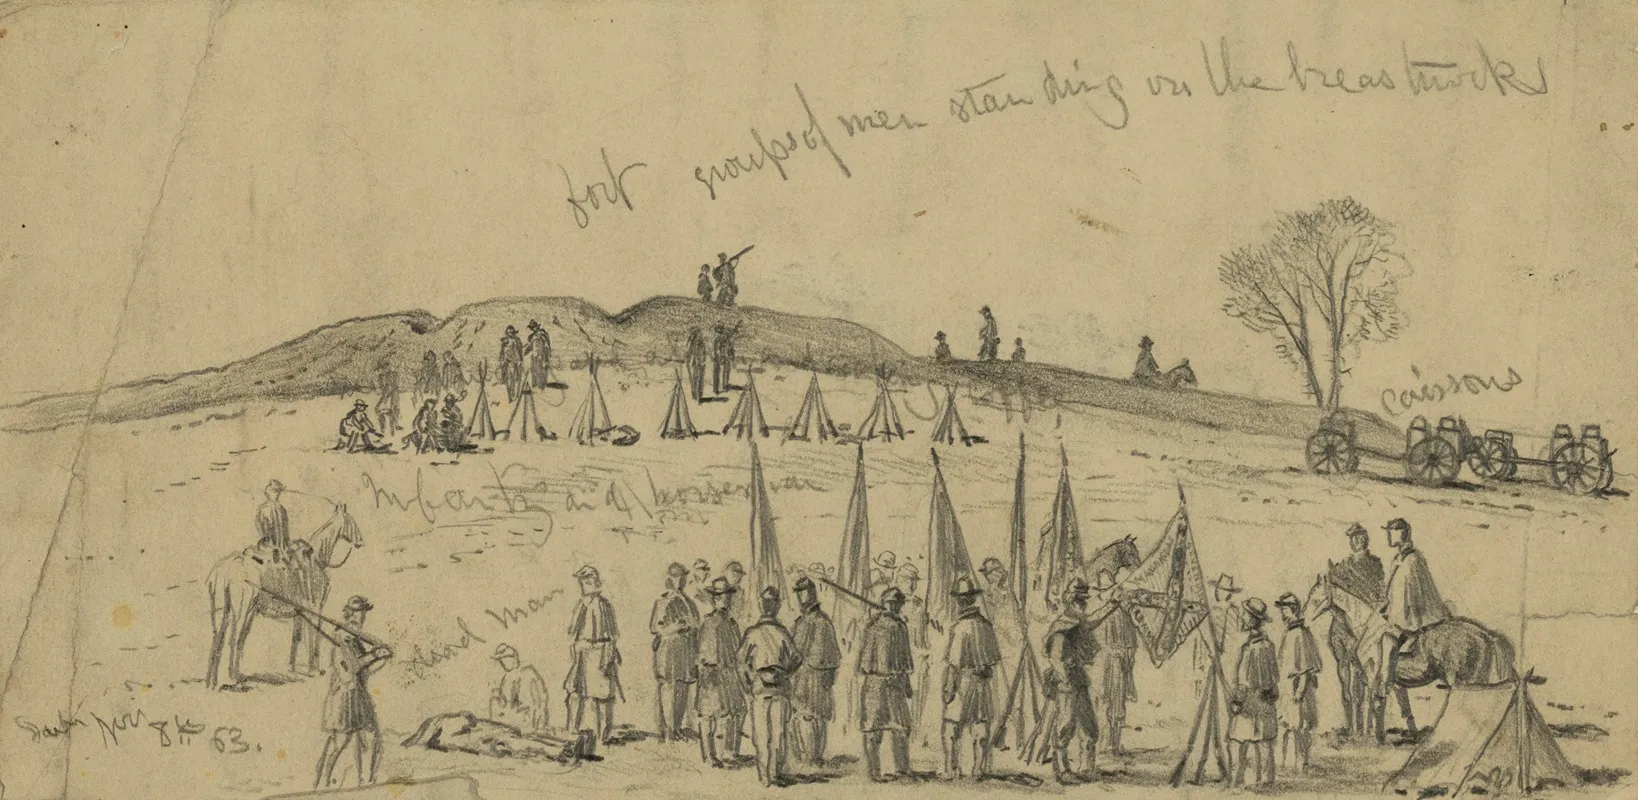 fort groups of men standing on the breastworks
caissons
Infantry and horseman
dead man
Nov 8th 63.